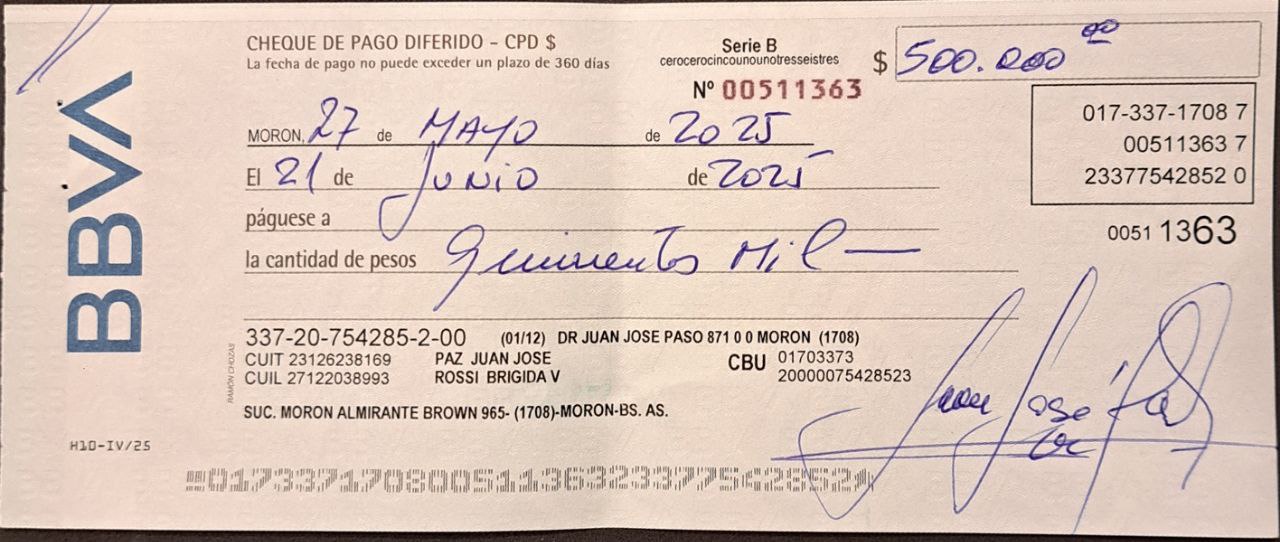 BBVA
CHEQUE DE PAGO DIFERIDO - CPD $
La fecha de pago no puede exceder un plazo de 360 días
Serie B
cerocerocincounounotresseistres
Nº 00511363
$ 500.000 00
MORON, 27 de MAYO de 2025
El 21 de JUNIO de 2025
páguese a
la cantidad de pesos Quinientos Mil
017-337-1708 7
00511363 7
23377542852 0
0051 1363
337-20-754285-2-00 (01/12) DR JUAN JOSE PASO 871 0 0 MORON (1708)
CUIT 23126238169 PAZ JUAN JOSE
CUIL 27122038993 ROSSI BRIGIDA V
CBU 01703373
20000075428523
SUC. MORON ALMIRANTE BROWN 965- (1708)-MORON-BS. AS.
RAMON CHOZAS
H10-IV/25
Juan José Paz
017337170800511363233775428524